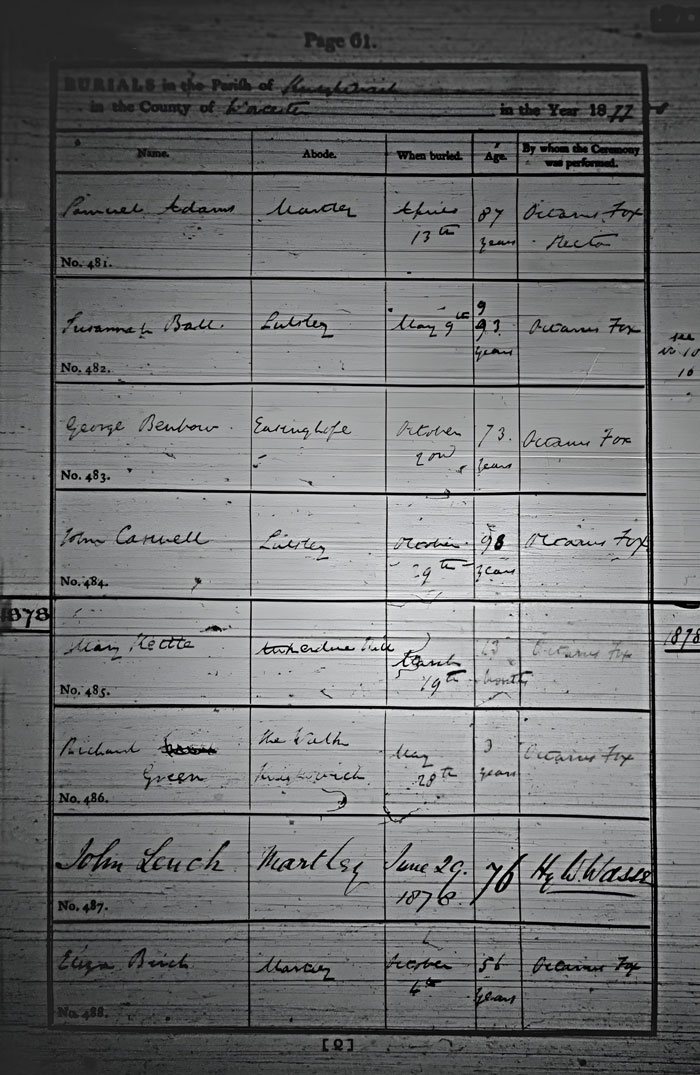 Page 61.
BURIALS in the Parish of Knightwick
in the County of Worcester in the Year 1877-8
Name. Abode. When buried. Age. By whom the Ceremony was performed.
Samuel Adams Martley April 87 Octavius Fox
13th years Rector
No. 481.
9
Susannah Ball. Lulsley May 9th 93. Octavius Fox
years
see
No. 10
16
No. 482.
George Benbow. October 73. Octavius Fox
2nd years
No. 483.
John Caswell Lulsley October 98 Octavius Fox
29th years
No. 484.
1878 1878
Mary Kettle Ankerdine Hill March 13 Octavius Fox
19th months
No. 485.
Richard The May 3 Octavius Fox
Green Knightwick 28th years
No. 486.
John Leuch Martley June 29. 76 Hy W. Wasse
1878.
No. 487.
Eliza Birch Martley October 56 Octavius Fox
6th years
No. 488.
[2]